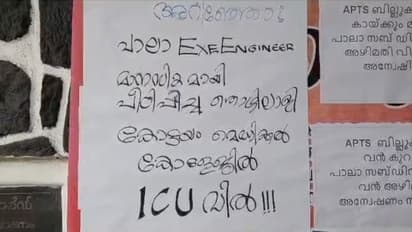 അറിഞ്ഞോ!
പാലാ EXE ENGINEER
മാനസിക മായി
പീഠിപ്പിച്ച തൊഴിലാളി
കോട്ടയം മെഡിക്കൽ
കോളേജിൽ
ICU വിൽ !!!
APTS ബില്ലുക
കായ്ക്കും
പാലാ സബ് ഡി
അഴിമതി
അന്വേഷി
APTS ബില്ലുക
വൻ കുറ
പാലാ സബ്ഡിറ
വൻ അഴി
അന്വേഷണം